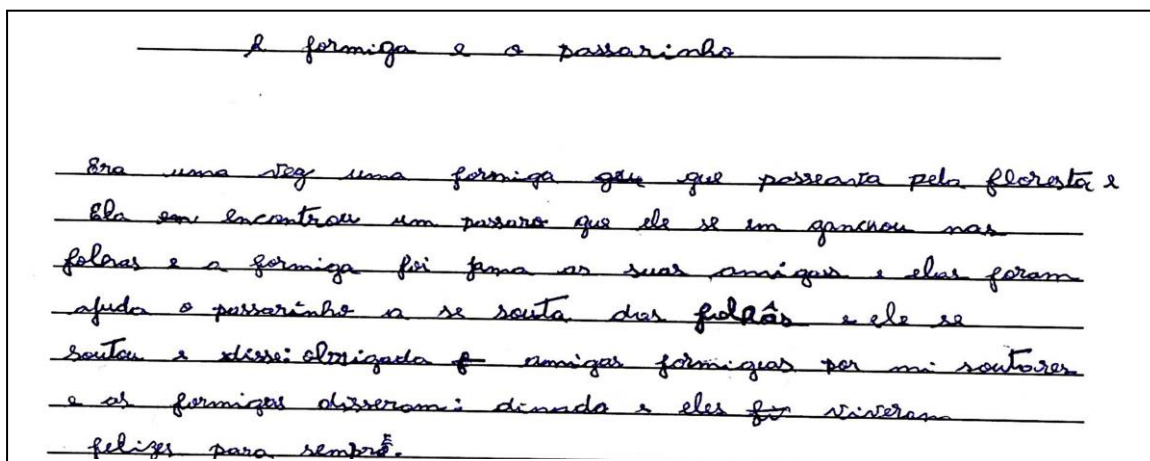 A formiga e o passarinho
Era uma vez uma formiga que que passeava pela floresta e
Ela en encontrou um passaro que ele se em ganchou nas
folras e a formiga foi as suas amigas e elas foram
ajuda o passarinho a se souta das e ele se
soutou e disse: obrigada amigas formigas por mi soutores
e as formigas disseram: dinada e eles fi viveram
felizes para sempre.